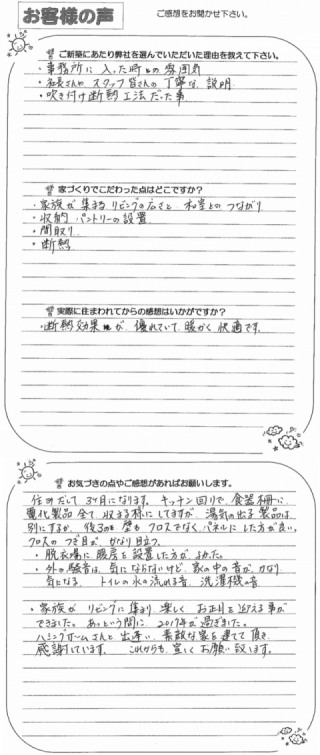 お客様の声
ご感想をお聞かせ下さい。
ご新築にあたり弊社を選んでいただいた理由を教えて下さい。
・事務所に入った時の雰囲気
・社長さんやスタッフ皆さんの丁寧な説明
・吹き付け断熱工法だった事
家づくりでこだわった点はどこですか？
・家族が集まるリビングの広さと和室とのつながり
・収納 パントリーの設置
・間取り
・断熱
実際に住まわれてからの感想はいかがですか？
・断熱効果が、優れていて、暖かく快適です。
お気づきの点やご感想があればお願いします。
住みだして3ヶ月になります。キッチン回りで、食器棚に
電化製品全て収まる様にしてますが、湯気の出る製品は、
別にするか、後ろの壁もクロスでなく、パネルにした方が良い。
クロスのつぎ目が、かなり目立つ。
・脱衣場に暖房を設置した方が、よかった。
・外の騒音は、気にならないけど、家の中の音が、かなり
気になる。 トイレの水の流れる音、洗濯機の音
・家族が、リビングに集まり、楽しく お正月を迎える事が
できました。あっという間に、2017年が過ぎました。
ハミングホームさんと出逢い、素敵な家を建てて頂き、
感謝しています。 これからも、宜しくお願い致します。